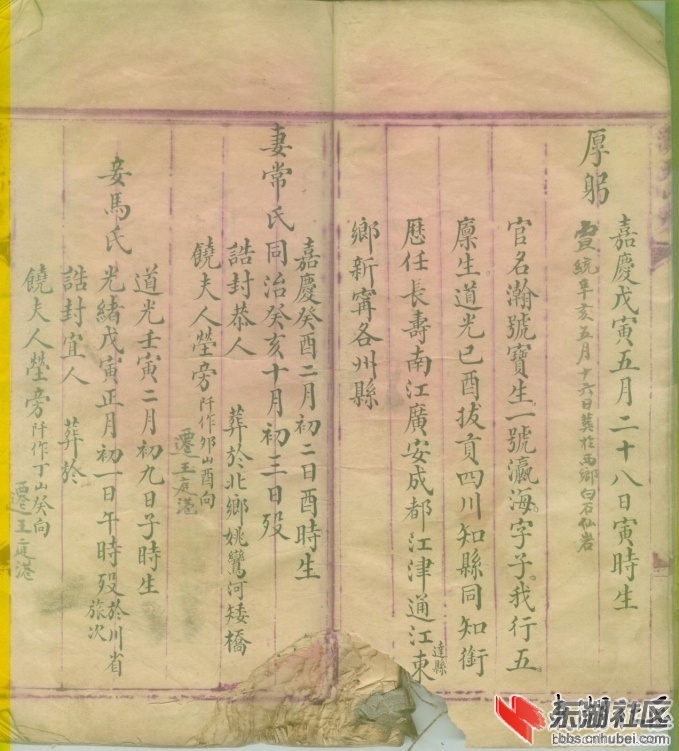 厚躬
嘉慶戊寅五月二十八日寅時生
宣統辛亥五月十六日葬於西鄉白石仙岩
官名瀚號寶生一號瀛海字子我行五
廩生道光己酉拔貢四川知縣同知銜
歷任長壽南江廣安成都江津通江東
達縣
鄉新甯各州縣
妻常氏
嘉慶癸酉二月初二日酉時生
同治癸亥十月初三日歿
誥封恭人 葬於北鄉姚鸞河矮橋
饒夫人塋旁阡作夘山酉向
遷王庭港
妾馬氏
道光壬寅二月初九日子時生
光緒戊寅正月初一日午時歿於川省旅次
誥封宜人 葬於
饒夫人塋旁阡作丁山癸向
遷王庭港
东湖社区
bbs.cnhubei.com